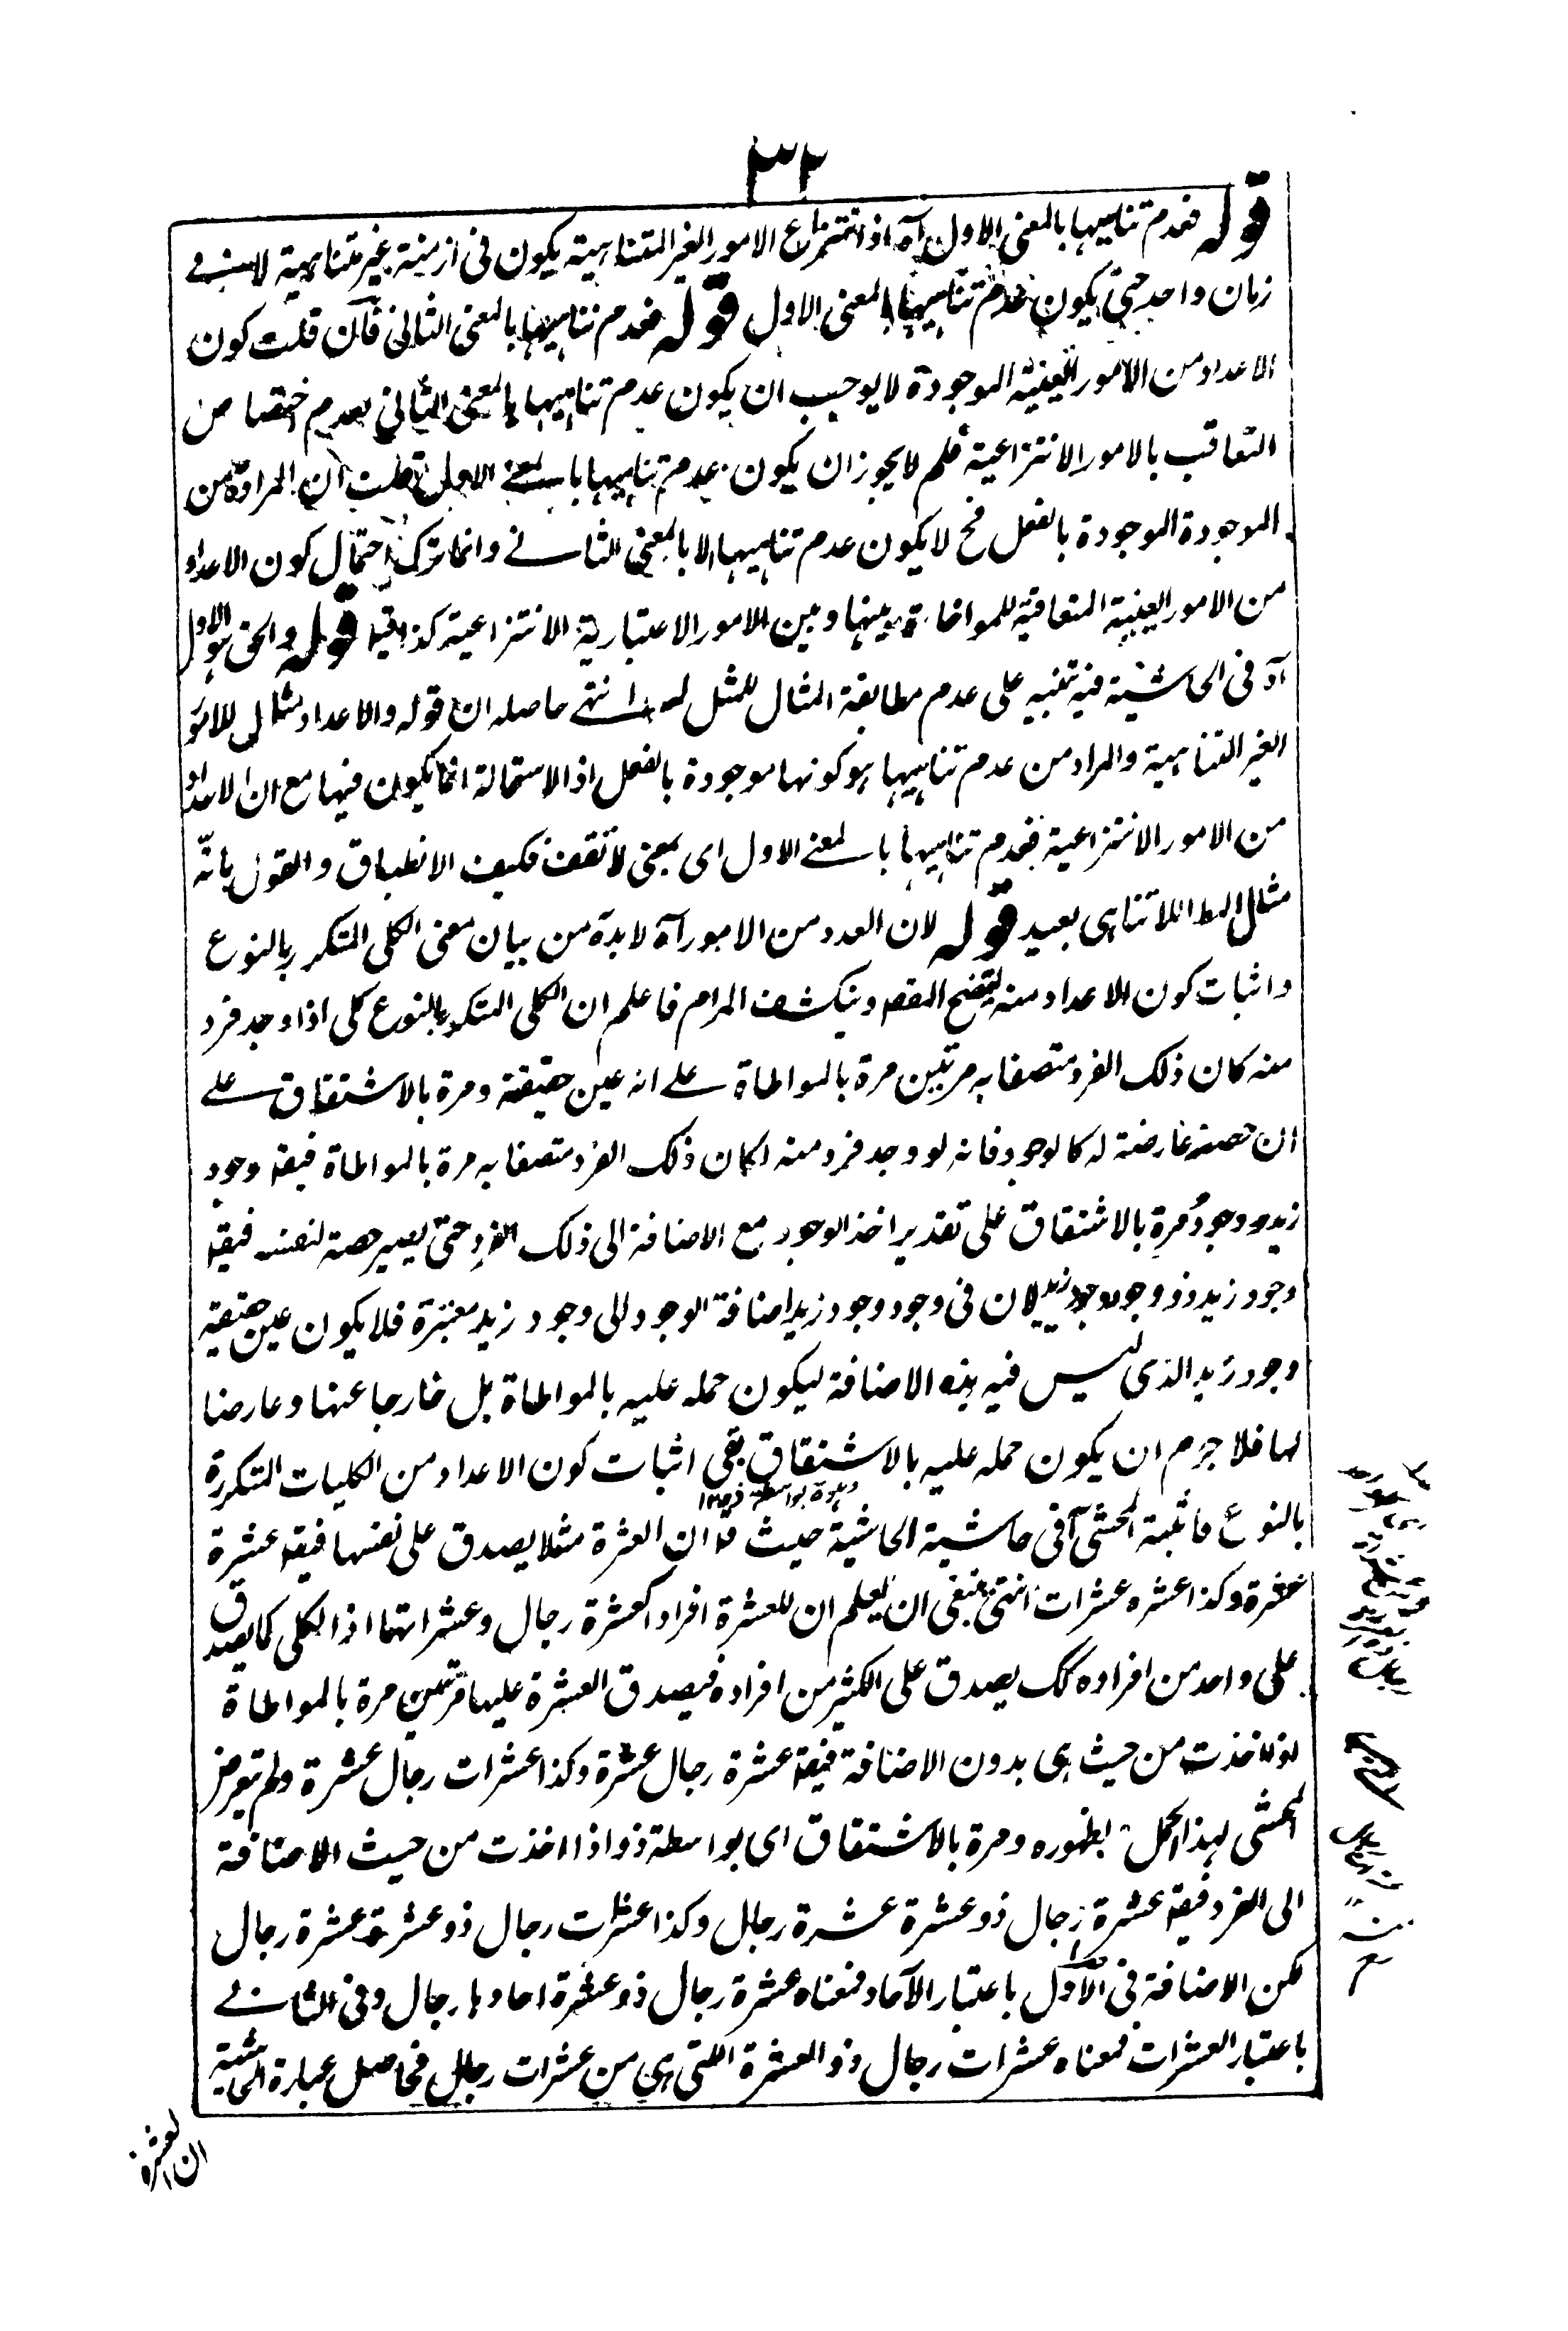 ٣٢
قوله فعدم تناهيها بالمعنى الاول آه اذ انتزاع الامور الغير المتناهية يكون فى ازمنة غير متناهية لا فى
زمان واحد حتى يكون عدم تناهيها بالمعنى الاول قوله فعدم تناهيها بالمعنى الثانى فان قلت كون
الاعداد من الامور العينية الموجودة لا يوجب ان يكون عدم تناهيها بالمعنى الثانى لعدم اختصاص
التعاقب بالامور الانتزاعية فلم لا يجوز ان يكون عدم تناهيها بالمعنى الاول قلت ان المراد من
الموجودة الموجودة بالفعل فح لا يكون عدم تناهيها الا بالمعنى الثانى وانما ترك احتمال كون الاعداد
من الامور العينية المتعاقبة للمواخاة بينها وبين الامور الاعتبارية الانتزاعية كذا قيل قوله والحق هو الاول
آه فى الحاشية فيه تنبيه على عدم مطابقة المثال للمثل له انتهى حاصله ان قوله والاعداد مثال للامور
الغير المتناهية والمراد من عدم تناهيها هو كونها موجودة بالفعل اذ الاستحالة انما يكون فيها مع ان الاعداد
من الامور الانتزاعية فعدم تناهيها بالمعنى الاول اى بمعنى لا تقف فكيف الانطباق والقول بانه
مثال اللاتناهى بعيد قوله لان العدد من الامور آه لا بد من بيان معنى الكلى المتكرر بالنوع
واثبات كون الاعداد منه ليتضح المقصد وينكشف المرام فاعلم ان الكلى المتكرر بالنوع كلى اذا وجد فرد
منه كان ذلك الفرد متصفا به مرتين مرة بالمواطاة على انه عين حقيقة ومرة بالاشتقاق على
ان حصة عارضة له كالوجود فانه لو وجد فرد منه لكان ذلك الفرد متصفا به مرة بالمواطاة فيقه وجود
زيد وجود ومرة بالاشتقاق على تقدير اخذ الوجود مع الاضافة الى ذلك الفرد حتى يصير حصة لنفسه فيقه
وجود زيد ذو وجود وجود زيد لان فى وجود وجود زيد اضافة الوجود الى وجود زيد معتبرة فلا يكون عين حقيقة
وجود زيد الذى ليس فيه هذه الاضافة ليكون حمله عليه بالمواطاة بل خارجا عنها وعارضا
لها فلا جرم ان يكون حمله عليه بالاشتقاق بقى اثبات كون الاعداد من الكليات المتكررة
بالنوع فاثبته المحشى فى حاشية الحاشية حيث قه ان العشرة مثلا يصدق على نفسها فيقه عشرة
عشرة وكذا عشرة عشرات انتهى ينبغى ان يعلم ان للعشرة افراد كعشرة رجال وعشراتها اذ الكلى كما يصدق
على واحد من افراده كك يصدق على الكثير من افراده فيصدق العشرة عليها مرتين مرة بالمواطاة
لو اخذت من حيث هى بدون الاضافة فيقه عشرة رجال عشرة وكذا عشرات رجال عشرة ولم يتعرض
المحشى لهذا الحمل لظهوره ومرة بالاشتقاق اى بواسطة ذو اذا اخذت من حيث الاضافة
الى الفرد فيقه عشرة رجال ذو عشرة عشرة رجال وكذا عشرات رجال ذو عشرة عشرة رجال
لكن الاضافة فى الاول باعتبار الآحاد فمعناه عشرة رجال ذو عشرة احادها رجال وفى الثانى
باعتبار العشرات فمعناه عشرات رجال ذو العشرة اللتى هى من عشرات رجال فحاصل عبارة الحاشية
ان العشرة